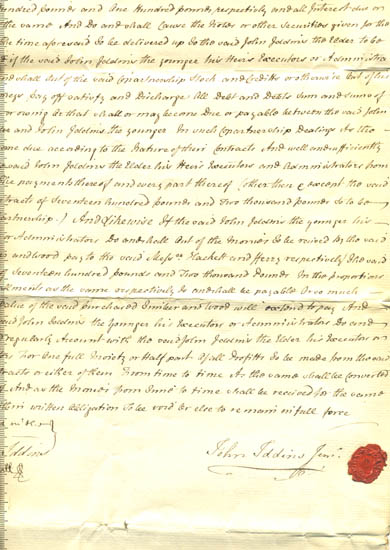 Hundred pounds and One Hundred pounds respectively and all Interest due or
the same And do and shall Cause the Notes or other Securities given for the
the time aforesaid to be delivered up to the said John Iddins the Elder to be
if the said John Iddins the younger his Heirs Executors or Administra
and shall Out of the said Copartnership Stock and Credits or otherwise
pay off satisfy and Discharge All Debt and Debts Sum and Sums of
or owing Or that shall or may become Due or payable between the said John
and John Iddins the younger In such Copartnership Dealings As the
due according to the Nature of their Contracts And well and sufficiently
said John Iddins the Elder his Heirs Executors and Administrators from
the payments thereof and every part thereof (other than & except the said
of Seventeen hundred pounds and Two thousand pounds So to be
) And Likewise If the said John Iddins the younger his
or Administrators Do and shall Out of the Monies To be received by the said
and Wood pay to the said Mess.rs Hackett and respectively the said
of Seventeen hundred pounds and Two Thousand Pounds In the proportions
as the same respectively to and shall be payable Or so much
value of the said purchased Timber and Wood will extend to pay And
said John Iddins the younger his Executors or Administrators Do and
regularly Account with the said John Iddins the Elder his Executors or
For One full Moiety or Half part Of all Profitts To be made from the said
or either of them From time to time As the same shall be converted
And as the Monies from time to time shall be received for the same
then written Obligation To be void Or else to remain in full force
Iddins
John Iddins Jun.r